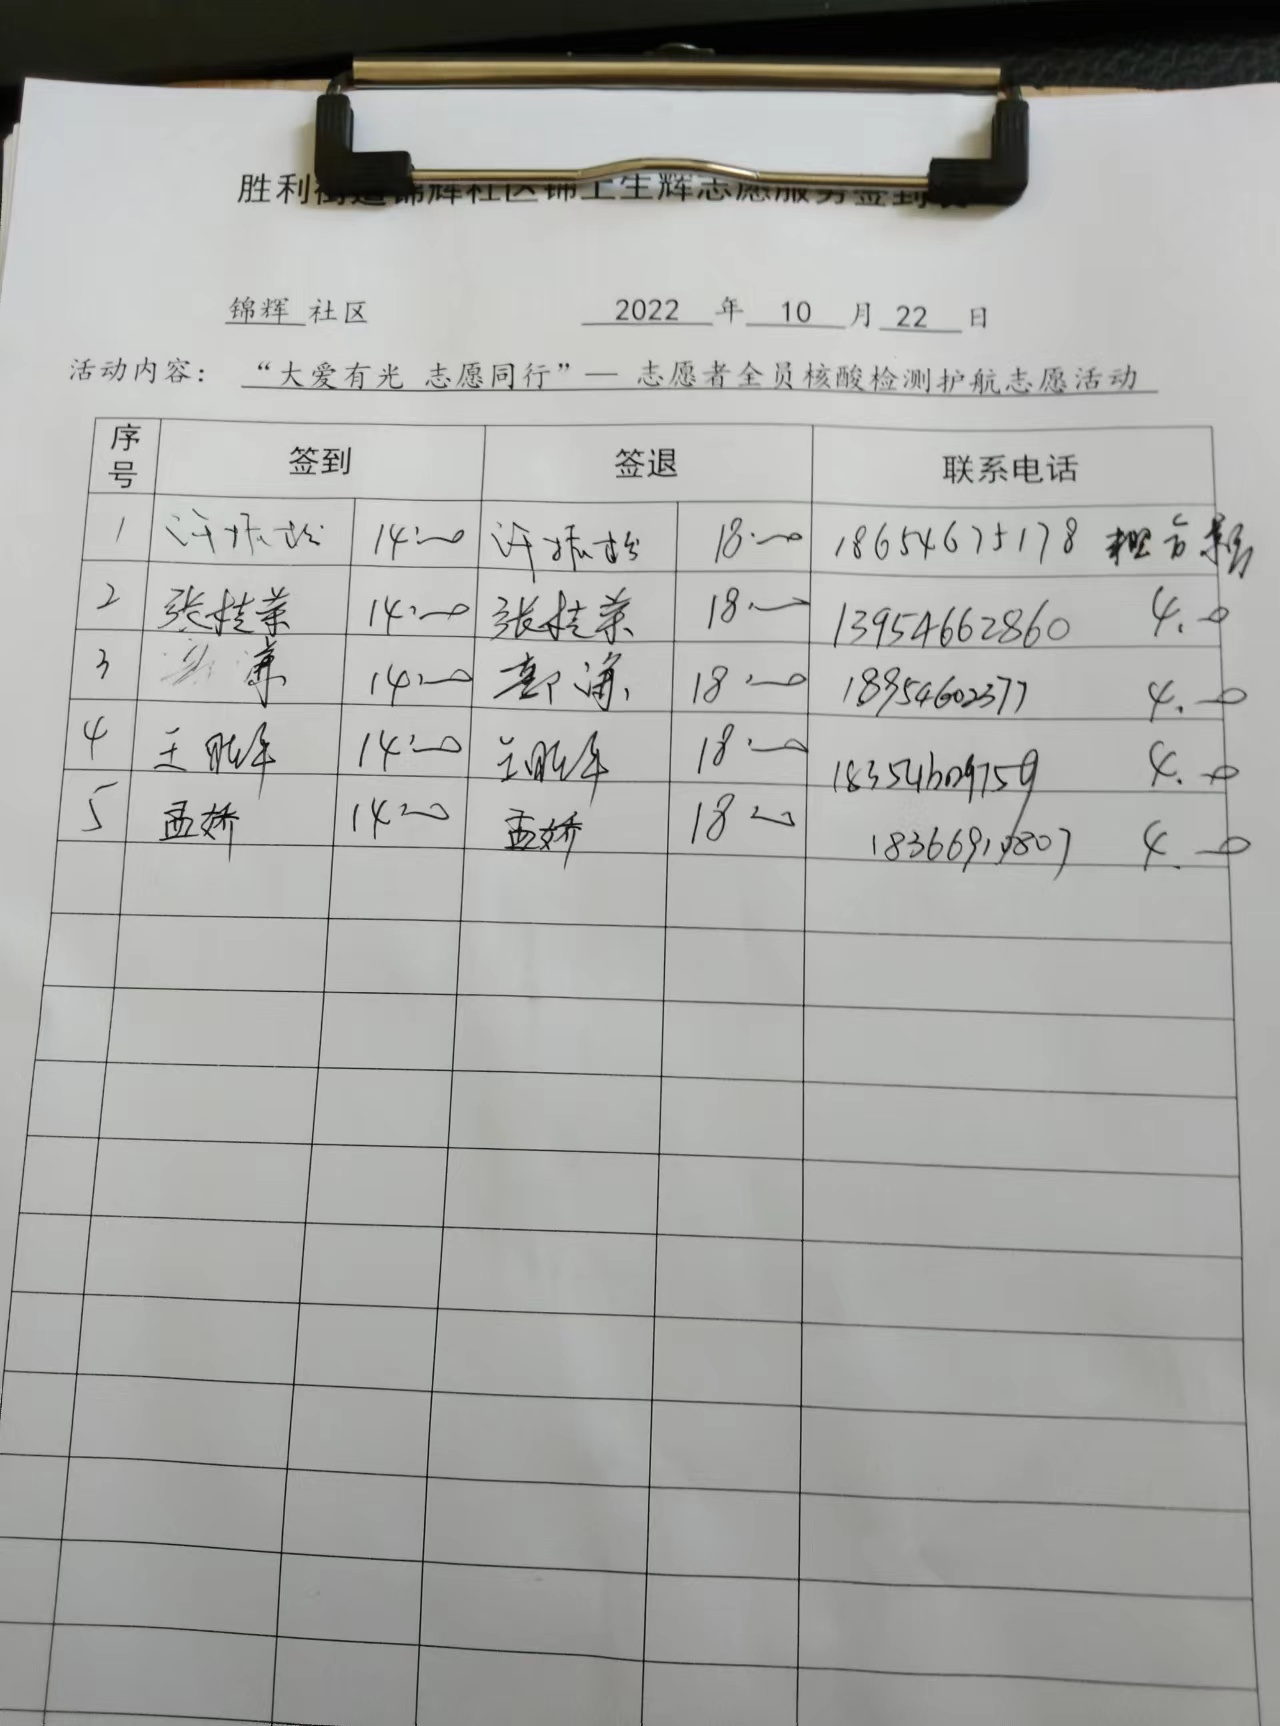 胜利街道锦辉社区锦上生辉志愿服务签到表
锦辉 社区 2022 年 10 月 22 日
活动内容： “大爱有光 志愿同行”— 志愿者全员核酸检测护航志愿活动
序号 签到 签退 联系电话
1 许 14:00 许 18:00 18654675178
2 张桂荣 14:00 张桂荣 18:00 13954662860 4.0
3 14:00 18:00 18954602377 4.0
4 王胜年 14:00 王胜年 18:00 18354609759 4.0
5 孟娇 14:00 孟娇 18:00 4.0